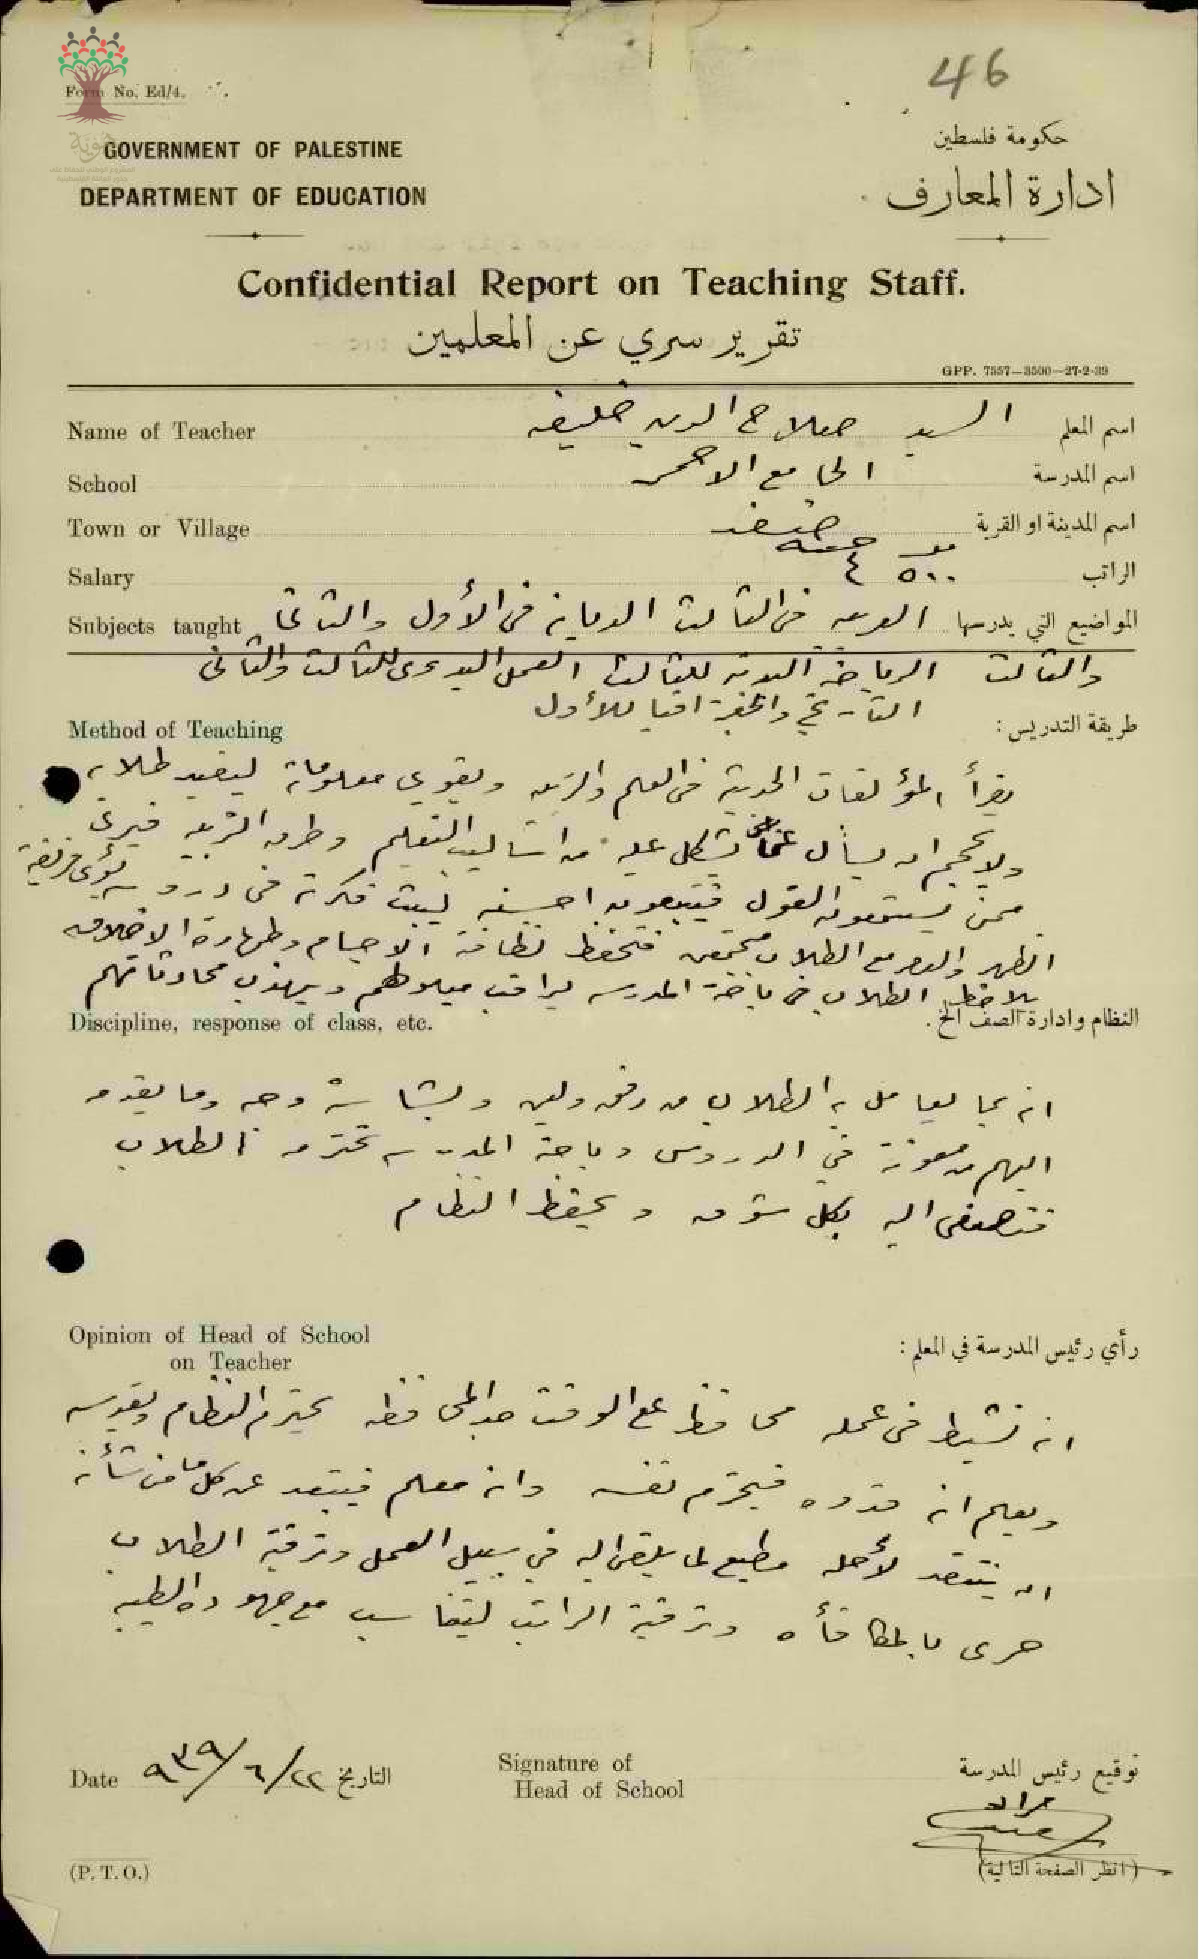 46
Form No. Ed/4.
GOVERNMENT OF PALESTINE
DEPARTMENT OF EDUCATION
حكومة فلسطين
ادارة المعارف
Confidential Report on Teaching Staff.
تقرير سري عن المعلمين
GPP. 7357—3500—27-2-39
Name of Teacher السيد صلاح الدين خليفه اسم المعلم
School الجامع الاحمر اسم المدرسة
Town or Village صفد اسم المدينة او القرية
Salary ٥٠٠ ٤ جنيه الراتب
Subjects taught العربيه في الثالث الديانه في الأول والثاني المواضيع التي يدرسها
والثالث الرياضة البدنيه للثالث العمل اليدوي للثالث والثاني
التاريخ والجغرافيا للأول
Method of Teaching طريقة التدريس :
يقرأ المؤلفات الحديثة في العلم والتربيه ويقوي معلوماته ليفيد طلابه
ولا يحجم ان يسأل عما يشكل عليه من اساليب التعليم وطرق التربيه فيرى
ممن يستمعون القول فيتبعون احسنه يثبت فكرته في دروسه يؤدي فريضة
الظهر والعصر مع الطلاب فتحفظ نظافة الاجسام وطهارة الاخلاق
يلاحظ الطلاب في باحة المدرسه يراقب ميولاهم ويهذب محادثاتهم
Discipline, response of class, etc. النظام وادارة الصف الخ.
انه بما يعامل به الطلاب من رفق ولين وبشاشة وجه وما يقدمه
اليهم من معونة في الدروس وباحة المدرسه تحترمه الطلاب
فتصغي اليه بكل شوق ويحفظ النظام
Opinion of Head of School
on Teacher
رأي رئيس المدرسة في المعلم :
انه نشيط في عمله محافظ على الوقت جد المحافظه يحترم النظام ويقدسه
ويعلم انه قدوه فيحترم نفسه وانه معلم فيبتعد عن كل ما من شأنه
ان ينتقد لأجله مطيع لما يلقى اليه في سبيل العمل وترقية الطلاب
حري بالمكافأه وترقية الراتب ليتناسب مع جهوده الطيبه
Date ٩٣٩/٦/٢٢ التاريخ
Signature of
Head of School
توقيع رئيس المدرسة
(P. T. O.)
(انظر الصفحة التالية)